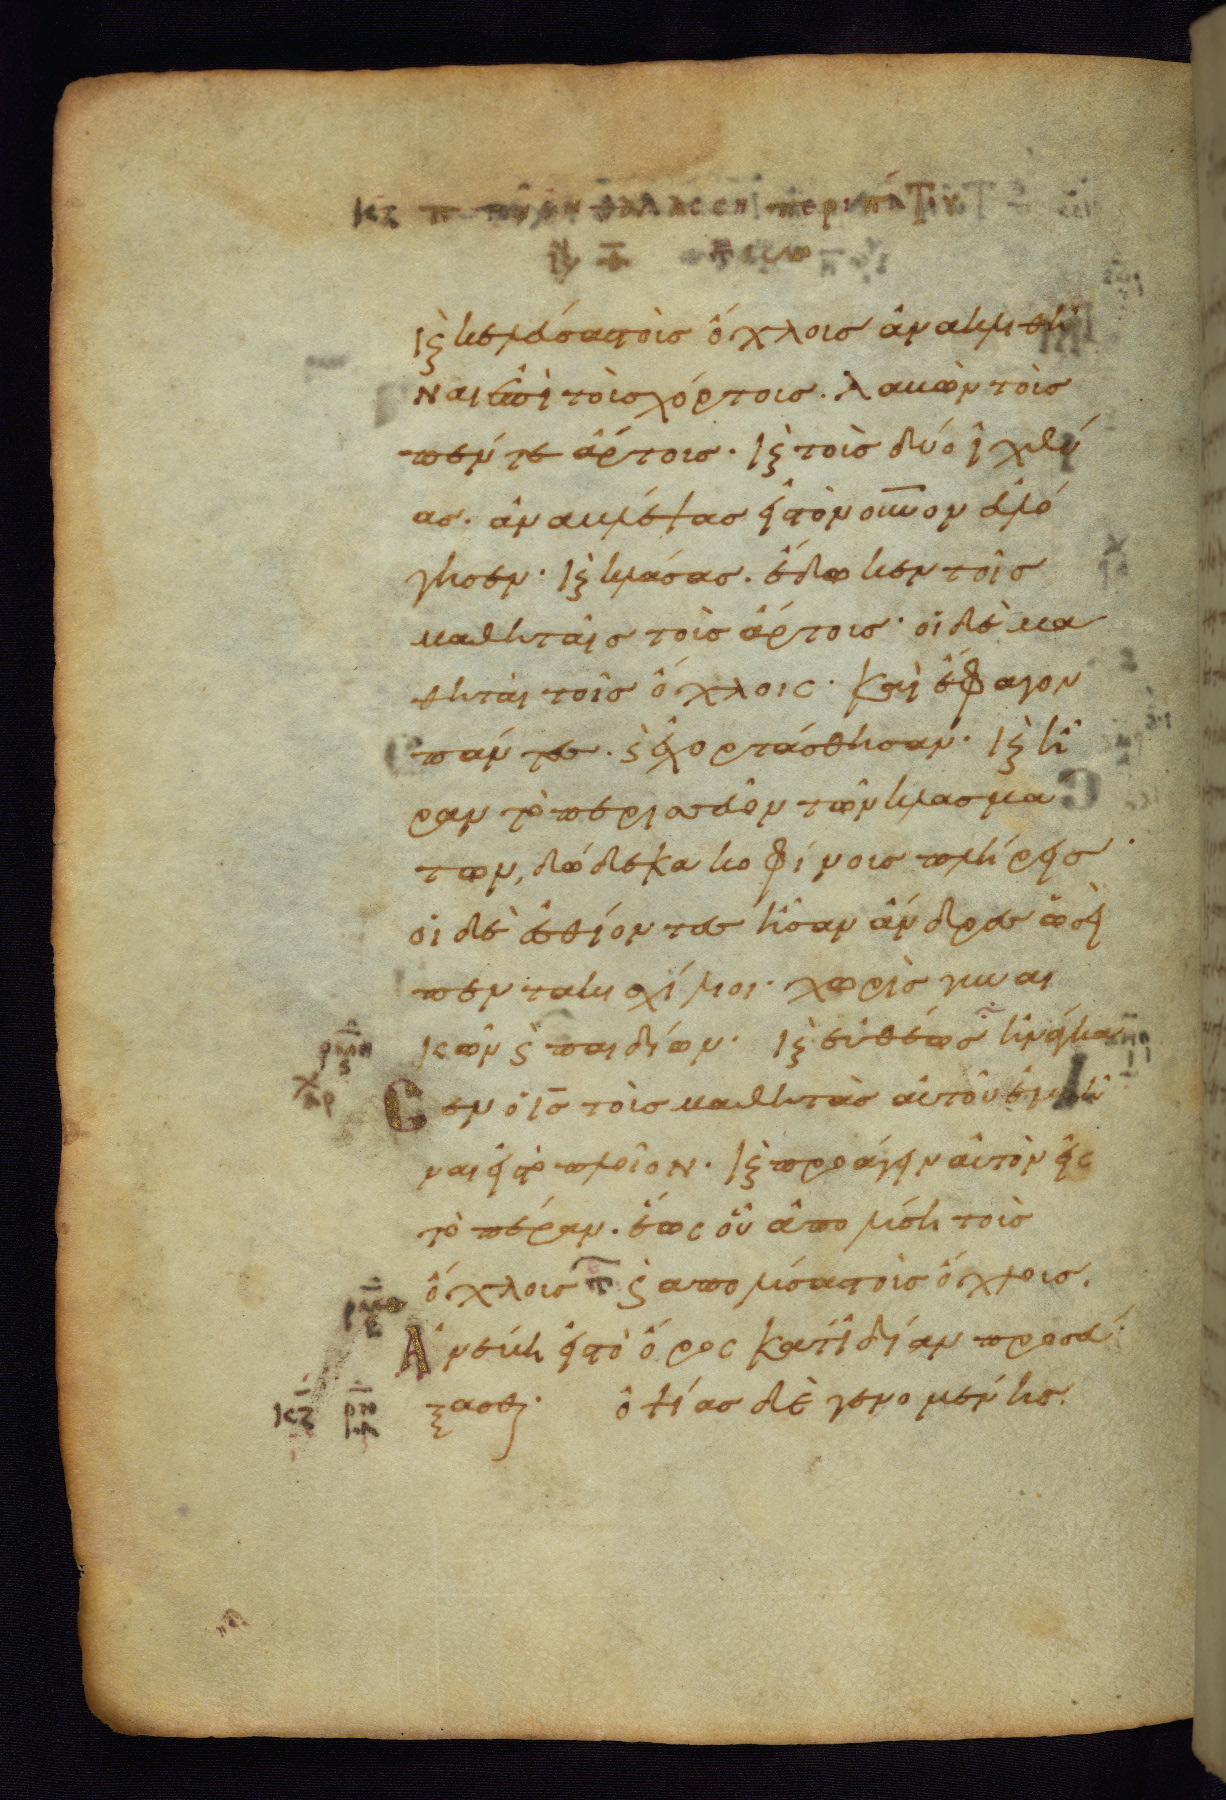 κζ π τοῦ ἐν θαλάσσῃ περιπάτου
κ(αὶ) κελεύσας τοὺς ὄχλους ἀνακλιθῆ
ναι ἐπὶ τοὺς χόρτους. λαβὼν τοὺς
πέντε ἄρτους. κ(αὶ) τοὺς δύο ἰχθύ
ας. ἀναβλέψας εἰς τὸν οὐ̅νον εὐλό
γησεν. κ(αὶ) κλάσας. ἔδωκεν τοῖς
μαθηταῖς τοὺς ἄρτους. οἱ δὲ μα
θηταὶ τοῖς ὄχλοις. καὶ ἔφαγον
πάντες. κ(αὶ) ἐχορτάσθησαν. κ(αὶ) ἦ
ραν τὸ περισσεῦον τῶν κλασμά
των, δώδεκα κοφίνους πλήρεις
οἱ δὲ ἐσθίοντες ἦσαν ἄνδρες ὡσεὶ
πεντακισχίλιοι. χωρὶς γυναι
κῶν κ(αὶ) παιδίων. κ(αὶ) εὐθέως ἠνάγκα
σεν ὁ ις̅ τοὺς μαθητὰς αὐτοῦ ἐμβῆ
ναι εἰς τὸ πλοῖον. κ(αὶ) προάγειν αὐτὸν εἰς
τὸ πέραν. ἕως οὗ ἀπολύσῃ τοὺς
ὄχλους κ(αὶ) ἀπολύσας τοὺς ὄχλους.
Ἀνέβη εἰς τὸ ὄρος κατϊδίαν προσεύ
ξασθαι. ὀψίας δὲ γενομένης.
κζ